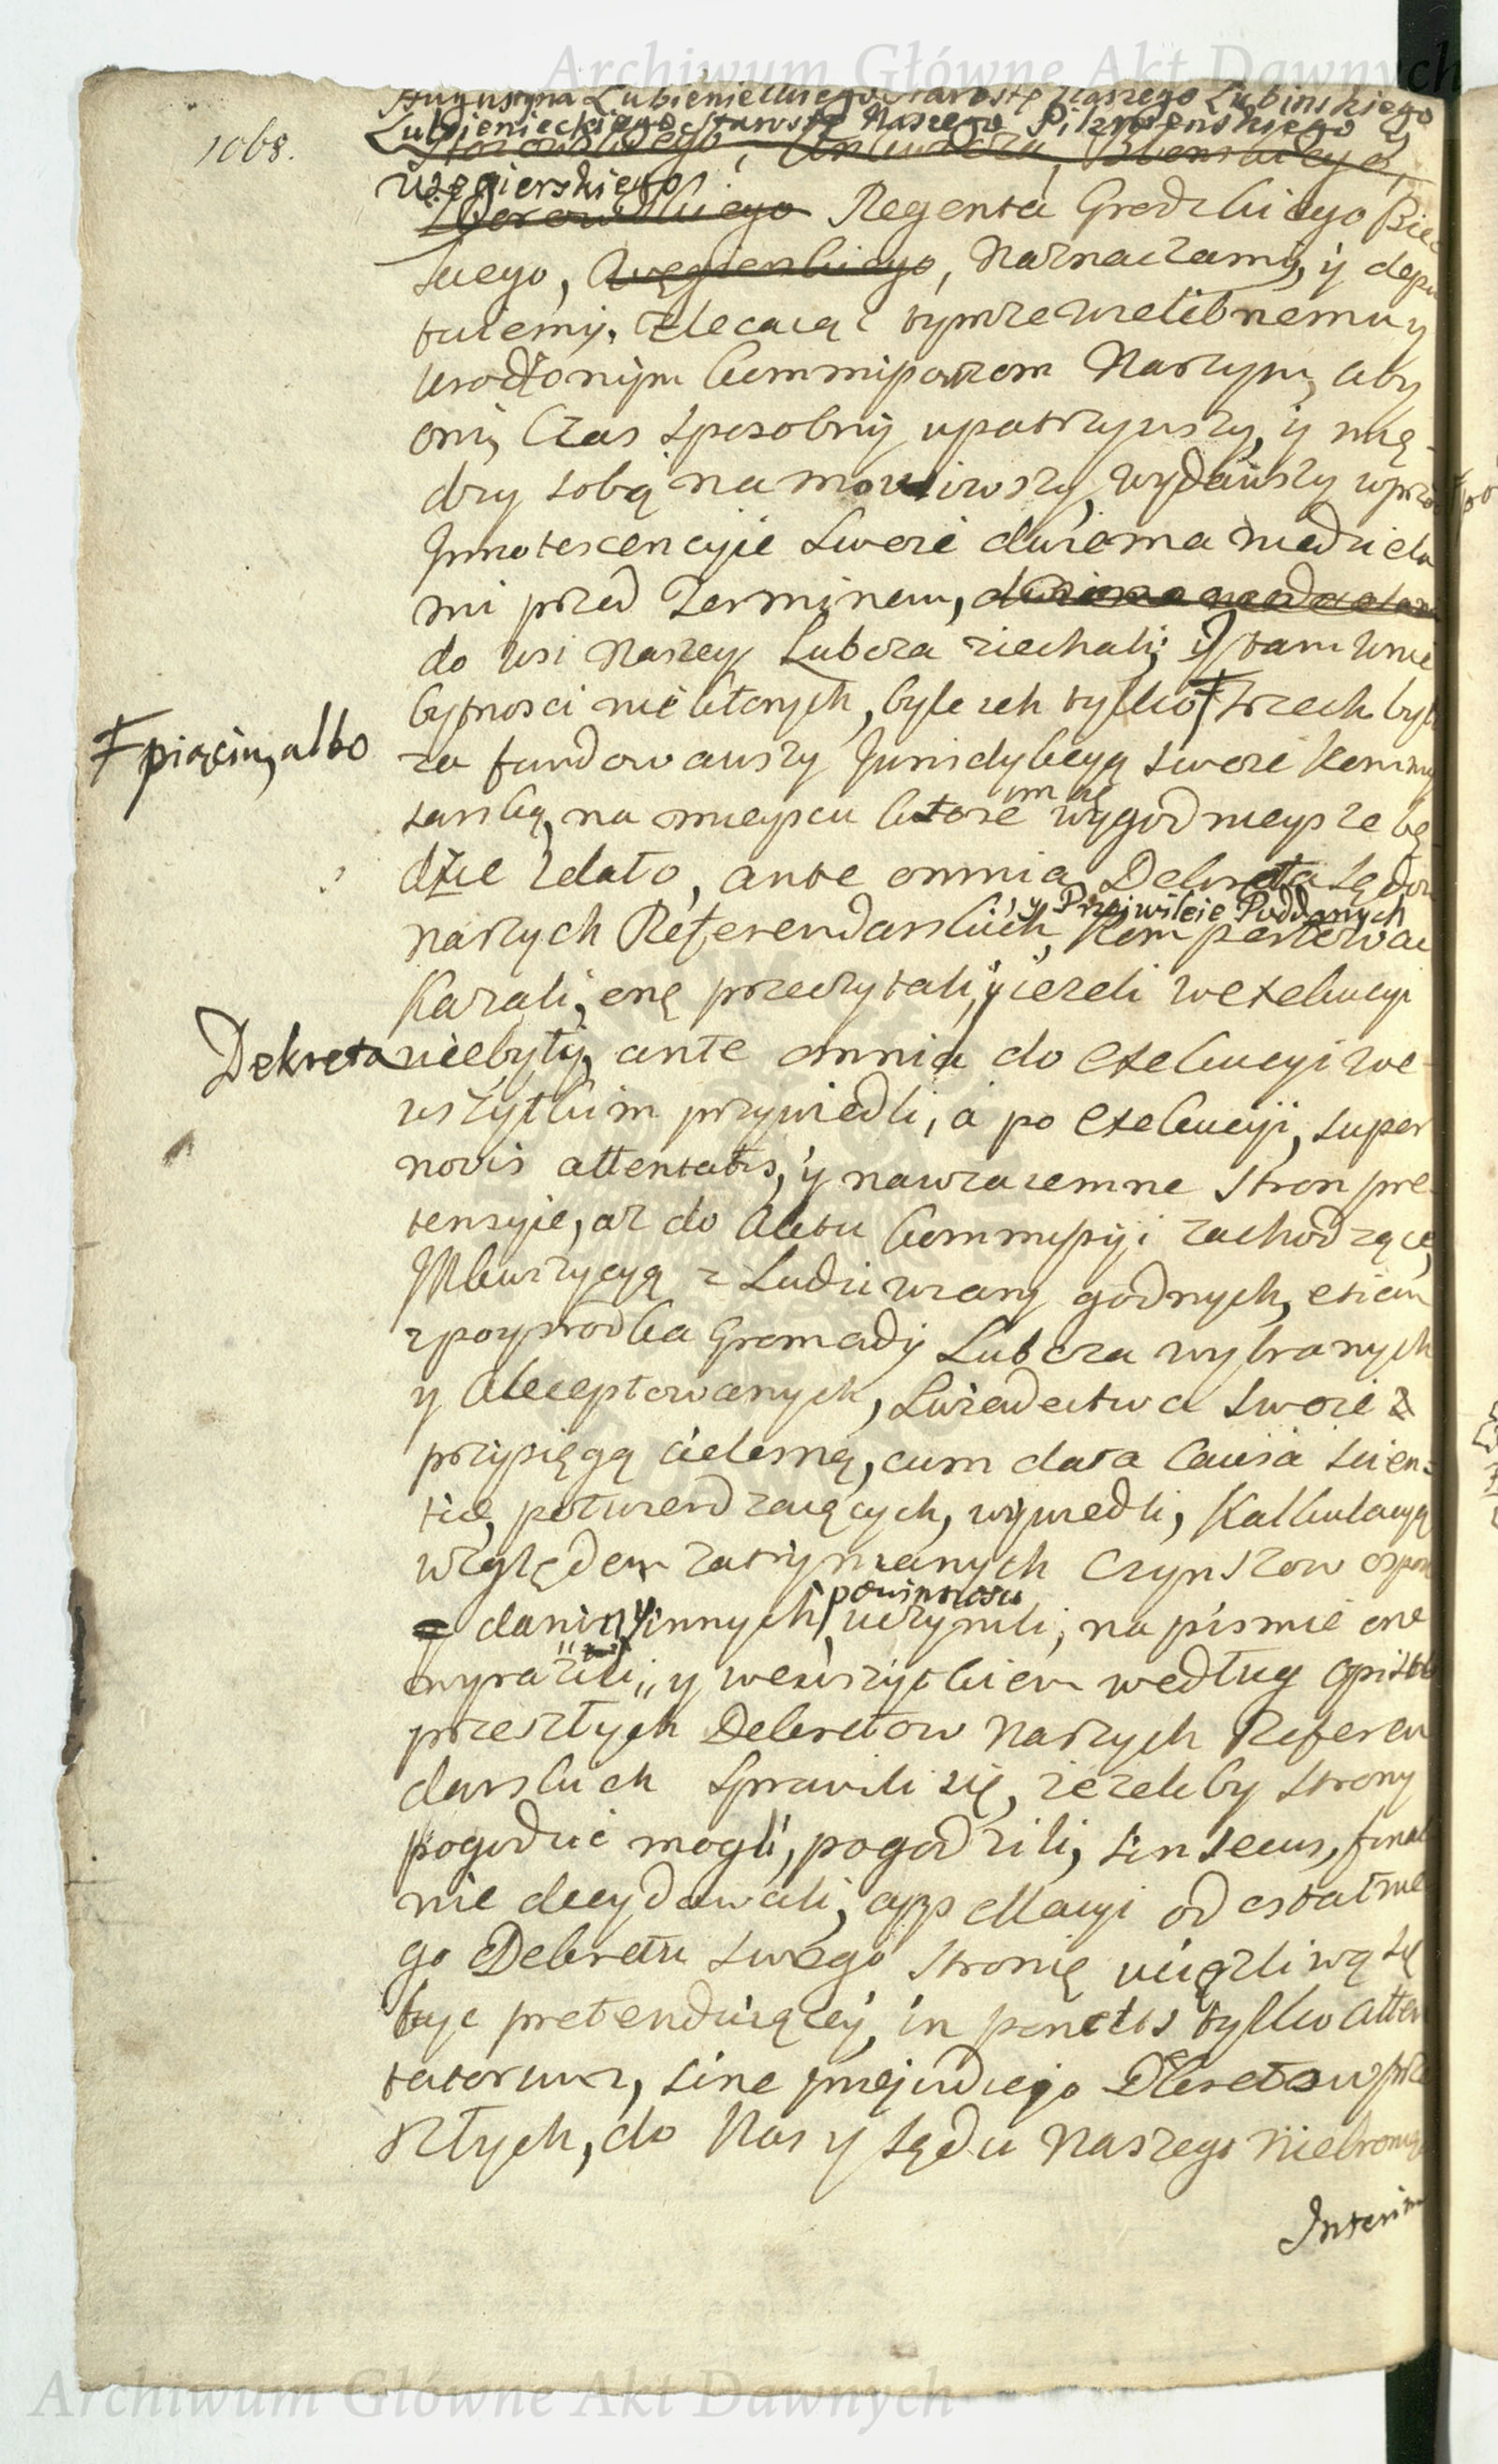 Archiwum Główne Akt Dawnych
1068.
Augustyna Lubienieckiego Starostę Naszego Lubinskiego
Lubienieckiego Starostę Naszego Pilznenskiego
Węgierskiego
Regenta Grodzkiego Biec
kiego, Węgierskiego, Naznaczamy, y depu
tuiemy, zlecaiąc tymże wielibnemu y
urodzonym Commissarzom Naszym, aby
oni, Czas sposobny upatrzywszy, y mię-
dzy sobą namowiwszy, wydawszy wprzo
Innotescencyie swoie dwiema niedziela
mi przed Terminem, dwiema niedzielami
do wsi Naszey Lubcza ziechali; y tam w nie
bytnosci niektorych, byle ich tylko Ŧ trzech było
Ŧ piąciu, albo
zafundowawszy Jurisdykcyą swoie Kommis
sarską, na mieyscu ktore im się wygodnieysze bę
dzie zdało, ante omnia Dekreta Sądow
naszych Referendarskich, y Przywileie Poddanych Komportować
kazali, onę przeczytali, y ieżeli w exekucyi
Dekreta niebyły, ante omnia do exekucyi we
wszytkim przywiedli, a po exekucyi, super
novis attentatis, y nawzaiemne Stron pre
tensyie, aż do Aktu Commissyi zachodzące,
Inkwizycyą z Ludzi wiary godnych, etiam
z posrodka Gromady Lubcza wybranych
y akceptowanych, swiadectwa swoie z
przysięgą cielesną, cum data causa scien-
tiæ, potwierdzaiących, wywiedli, Kalkulacyą
względem zatrzymanych Czynszow osp
danin y innych powinnosci uczynili, na pismie one
wyrazili, y wewszystkiem według opisu
przeszłych Dekretow Naszych Referen
darskich sprawili się, ieżeliby strony
pogodzic mogli, pogodzili, sin secus, final
nie decydowali, appellacyi od ostatnie
go Dekretu swego stronie uciążliwą się
byc pretenduiącey, in punctis tylko atten
tatorum, sine præjudicio Dekretow prze
szłych, do Nas y Sądu Naszego niebroniąc
Interim
Archiwum Główne Akt Dawnych